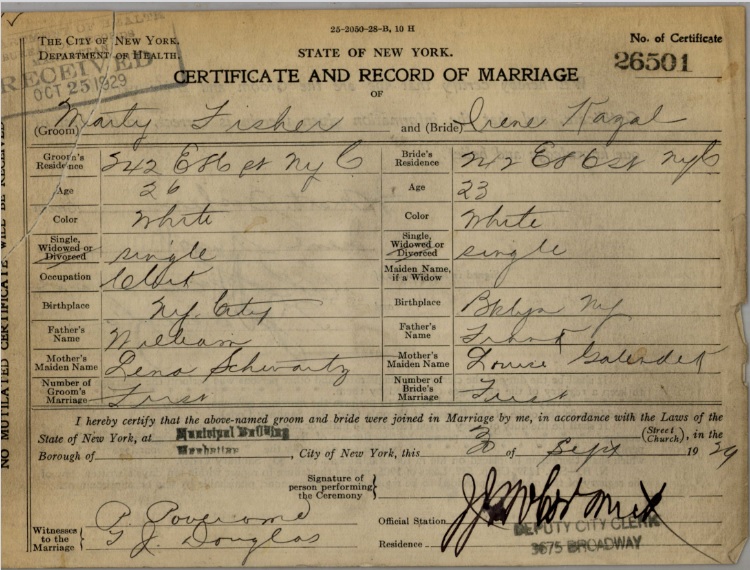 25-2050-28-B, 10 H
THE CITY OF NEW YORK.
DEPARTMENT OF HEALTH.
STATE OF NEW YORK.
No. of Certificate
26501
RECEIVED
OCT 25 1929
CERTIFICATE AND RECORD OF MARRIAGE
OF
(Groom) Marty Fisher and (Bride) Irene Kazal
Groom's Residence 242 E 86 st Ny C Bride's Residence 242 E 86 st Ny C
Age 26 Age 23
Color White Color White
Single, Widowed or Divorced single Single, Widowed or Divorced single
Occupation Clerk Maiden Name, if a Widow
Birthplace Ny. City Birthplace Bklyn Ny
Father's Name William Father's Name Frank
Mother's Maiden Name Lena Schwartz Mother's Maiden Name Louise
Number of Groom's Marriage First Number of Bride's Marriage First
I hereby certify that the above-named groom and bride were joined in Marriage by me, in accordance with the Laws of the
State of New York, at Municipal Building (Street Church), in the
Borough of Manhattan, City of New York, this 30 of Sept 1929
Signature of person performing the Ceremony
Witnesses to the Marriage
P.
J. Douglas
Official Station
DEPUTY CITY CLERK
Residence
3675 BROADWAY
NO MUTILATED CERTIFICATE WILL BE RECEIVED